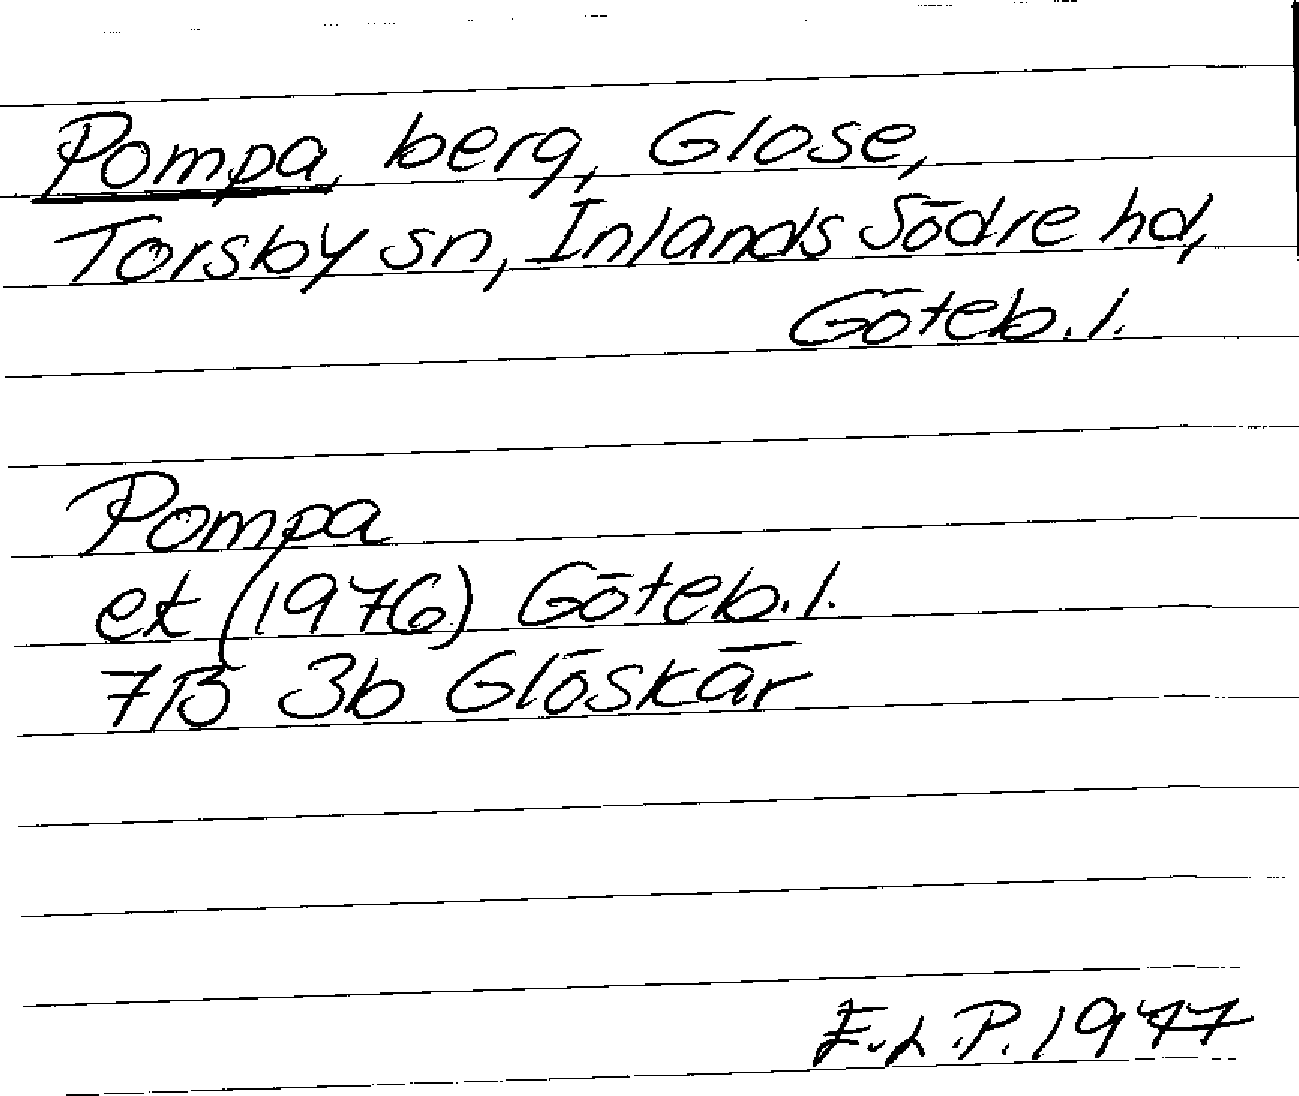 Pompa, berg, Glose,
Torsby sn, Inlands Södre hd,
Göteb. l.
Pompa
ek (1976) Göteb. l.
7B 3b Glöskär
E.L.P. 1977